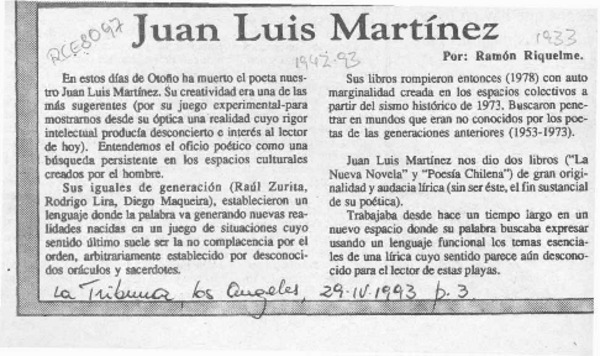 Juan Luis Martínez
RCE8097
1942-93
1933
Por: Ramón Riquelme.
En estos días de Otoño ha muerto el poeta nues-
tro Juan Luis Martínez. Su creatividad era una de las
más sugerentes (por su juego experimental-para
mostrarnos desde su óptica una realidad cuyo rigor
intelectual producía desconcierto e interés al lector
de hoy). Entendemos el oficio poético como una
búsqueda persistente en los espacios culturales
creados por el hombre.
Sus iguales de generación (Raúl Zurita,
Rodrigo Lira, Diego Maqueira), establecieron un
lenguaje donde la palabra va generando nuevas rea-
lidades nacidas en un juego de situaciones cuyo
sentido último suele ser la no complacencia por el
orden, arbitrariamente establecido por desconoci-
dos oráculos y sacerdotes.
Sus libros rompieron entonces (1978) con auto
marginalidad creada en los espacios colectivos a
partir del sismo histórico de 1973. Buscaron pene-
trar en mundos que eran no conocidos por los poe-
tas de las generaciones anteriores (1953-1973).
Juan Luis Martínez nos dio dos libros ("La
Nueva Novela" y "Poesía Chilena") de gran origi-
nalidad y audacia lírica (sin ser éste, el fin sustancial
de su poética).
Trabajaba desde hace un tiempo largo en un
nuevo espacio donde su palabra buscaba expresar
usando un lenguaje funcional los temas esencia-
les de una lírica cuyo sentido parece aún descono-
cido para el lector de estas playas.
La Tribuna, Los Angeles, 29-IV-1993 p. 3.